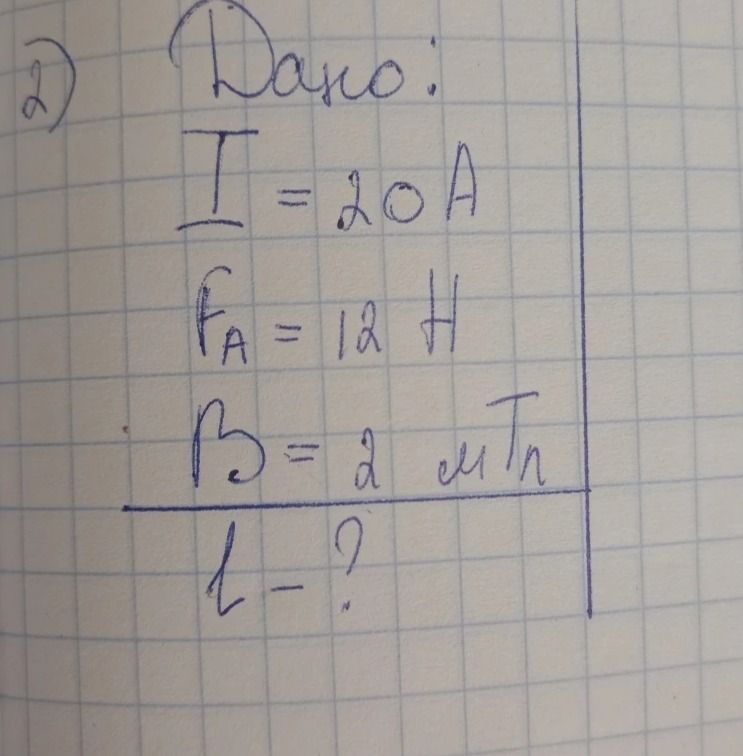 2) Дано:
I = 20 A
FA = 12 H
B = 2 мТл
l - ?